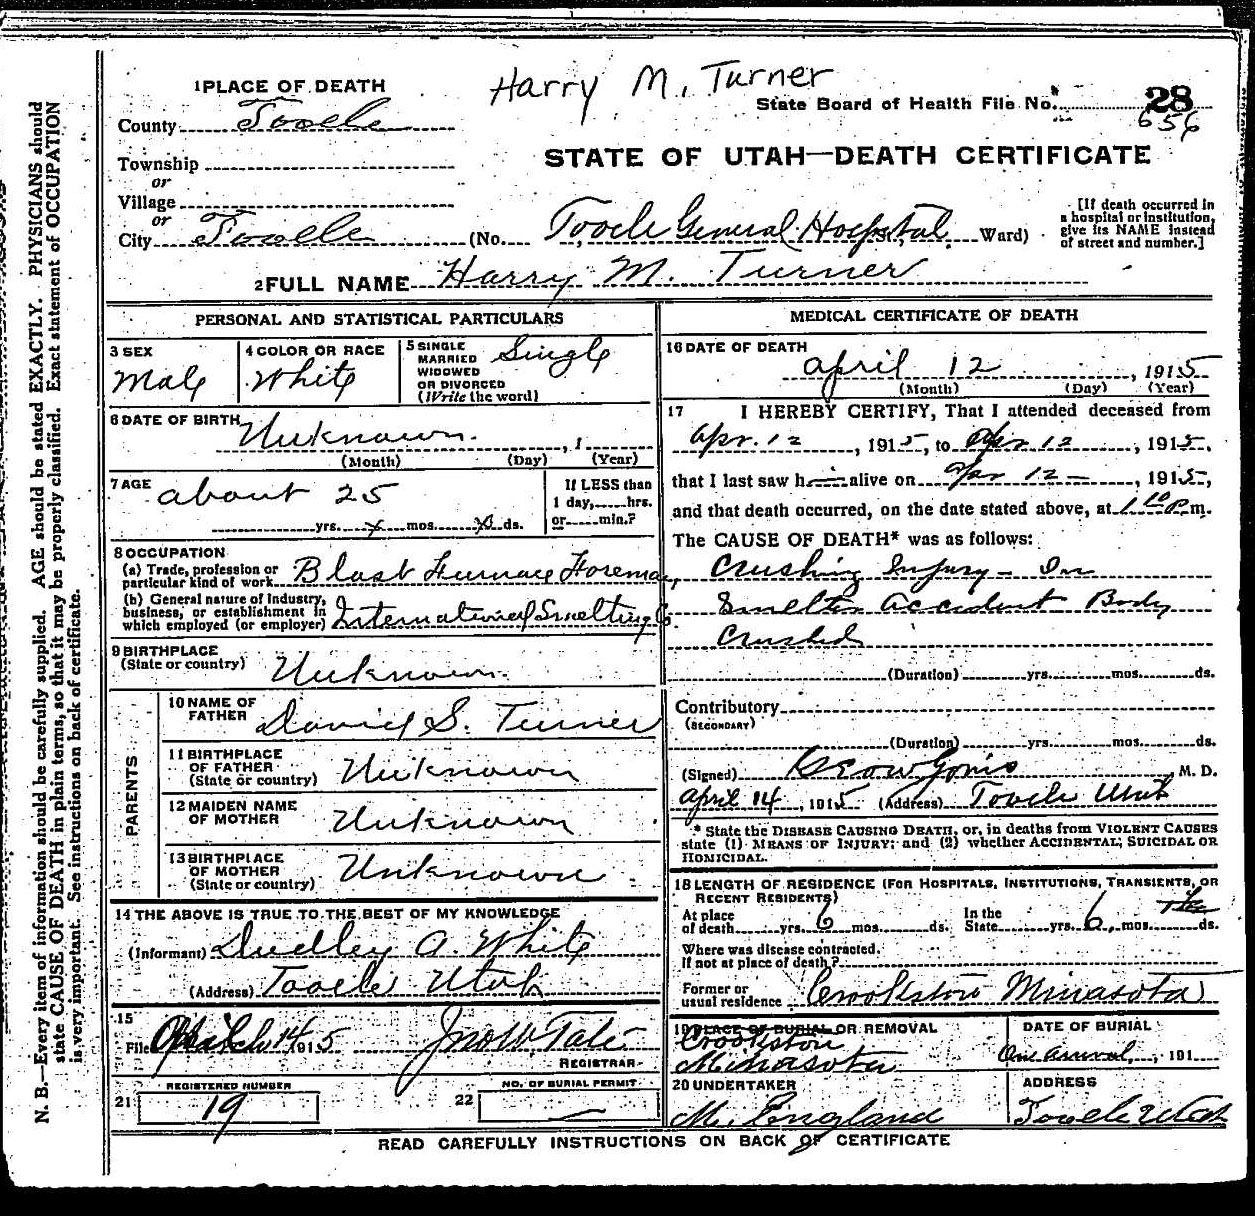 Harry M. Turner
1 PLACE OF DEATH
State Board of Health File No. 28
656
County Tooele
STATE OF UTAH—DEATH CERTIFICATE
Township
or
Village
or
City Tooele (No. Tooele General Hospital St., Ward)
[If death occurred in
a hospital or institution,
give its NAME instead
of street and number.]
2 FULL NAME Harry M. Turner
PERSONAL AND STATISTICAL PARTICULARS
3 SEX
Male
4 COLOR OR RACE
White
5 SINGLE
MARRIED
WIDOWED
OR DIVORCED
(Write the word)
Single
6 DATE OF BIRTH
Unknown , 1
(Month) (Day) (Year)
7 AGE
about 25
yrs. x mos. x ds.
If LESS than
1 day, hrs.
or min.?
8 OCCUPATION
(a) Trade, profession or
particular kind of work Blast Furnace Foreman,
(b) General nature of Industry,
business, or establishment in
which employed (or employer) International Smelting Co.
9 BIRTHPLACE
(State or country) Unknown
PARENTS
10 NAME OF
FATHER David S. Turner
11 BIRTHPLACE
OF FATHER
(State or country) Unknown
12 MAIDEN NAME
OF MOTHER Unknown
13 BIRTHPLACE
OF MOTHER
(State or country) Unknown
14 THE ABOVE IS TRUE TO THE BEST OF MY KNOWLEDGE
(Informant) Dudley A. White
(Address) Tooele Utah
15
Filed April 14 1915 Jno W Tate
REGISTRAR
REGISTERED NUMBER
21 19
NO. OF BURIAL PERMIT
22 —
MEDICAL CERTIFICATE OF DEATH
16 DATE OF DEATH
April 12 , 1915
(Month) (Day) (Year)
17 I HEREBY CERTIFY, That I attended deceased from
Apr. 12 , 1915, to Apr 12 , 1915,
that I last saw him alive on Apr 12 — , 1915,
and that death occurred, on the date stated above, at 1 10 P.m.
The CAUSE OF DEATH* was as follows:
Crushing Injury — In
Smelter accident Body
Crushed
(Duration) yrs. mos. ds.
Contributory
(SECONDARY)
(Duration) yrs. mos. ds.
(Signed) M. D.
April 14 , 1915 (Address) Tooele Utah
* State the DISEASE CAUSING DEATH, or, in deaths from VIOLENT CAUSES
state (1) MEANS OF INJURY; and (2) whether ACCIDENTAL, SUICIDAL OR
HOMICIDAL.
18 LENGTH OF RESIDENCE (FOR HOSPITALS, INSTITUTIONS, TRANSIENTS, OR
RECENT RESIDENTS)
At place
of death yrs. 6 mos. ds. In the
State yrs. 6 mos. ds.
Where was disease contracted.
If not at place of death?
Former or
usual residence Crookston Minasota
19 PLACE OF BURIAL OR REMOVAL
Crookston
Minasota
DATE OF BURIAL
On arrival , 191
20 UNDERTAKER
M. England
ADDRESS
Tooele Utah
READ CAREFULLY INSTRUCTIONS ON BACK OF CERTIFICATE
N. B.—Every item of information should be carefully supplied. AGE should be stated EXACTLY. PHYSICIANS should
state CAUSE OF DEATH in plain terms, so that it may be properly classified. Exact statement of OCCUPATION
is very important. See instructions on back of certificate.